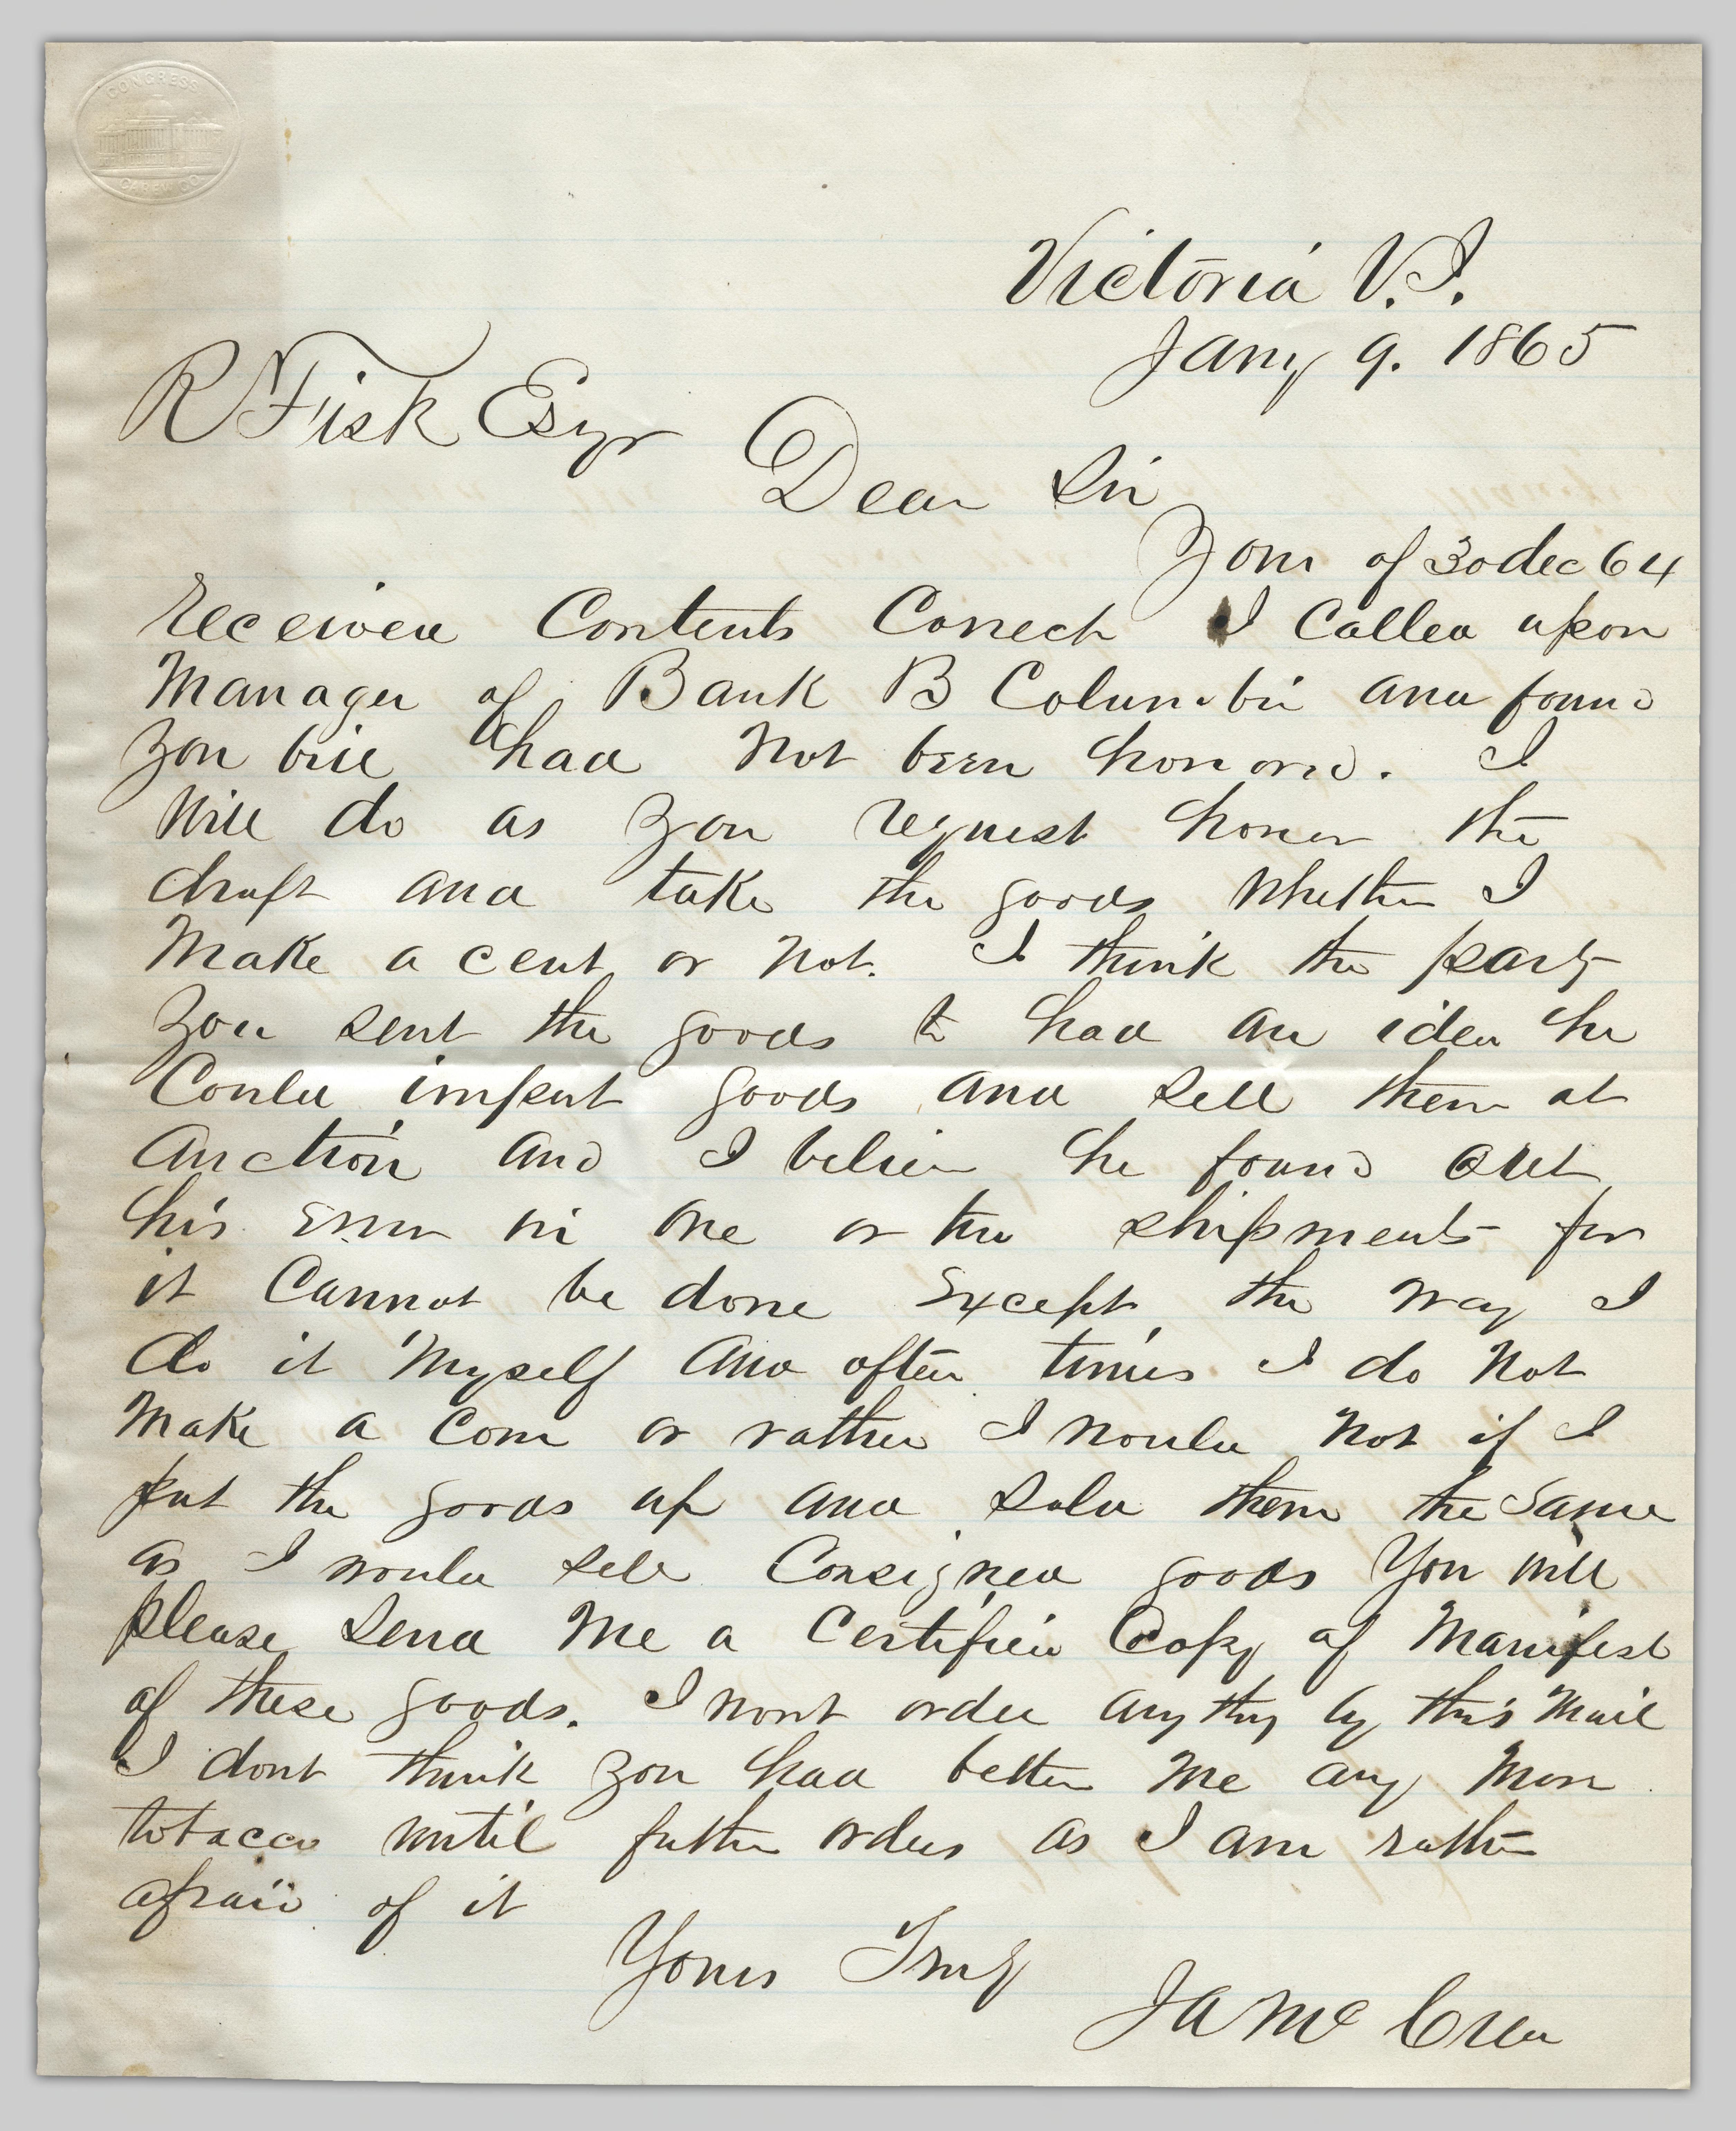 CONGRESS
CAREW CO
Victoria V.I.
Jany 9. 1865
R Fisk Esqr
Dear Sir
Your of 30 dec 64
received Contents Correct I Called upon
Manager of Bank B Columbia and found
you bill had not been honored. I
will do as you request honor the
draft and take the goods whether I
Make a cent or not. I think the party
you sent the goods to had an idea he
Could import goods and sell them at
Auction and I believe he found out
his error in one or two shipments for
it Cannot be done except the way I
do it Myself and often times I do not
Make a Com or rather I would not if I
put the goods up and sold them the same
as I would sell Consigned goods You will
please send Me a Certified Copy of Manifest
of these goods. I wont order any thing by this Mail
I dont think you had better Me any More
tobacco until further orders as I am rather
afraid of it
Yours Truly
J A McCrea